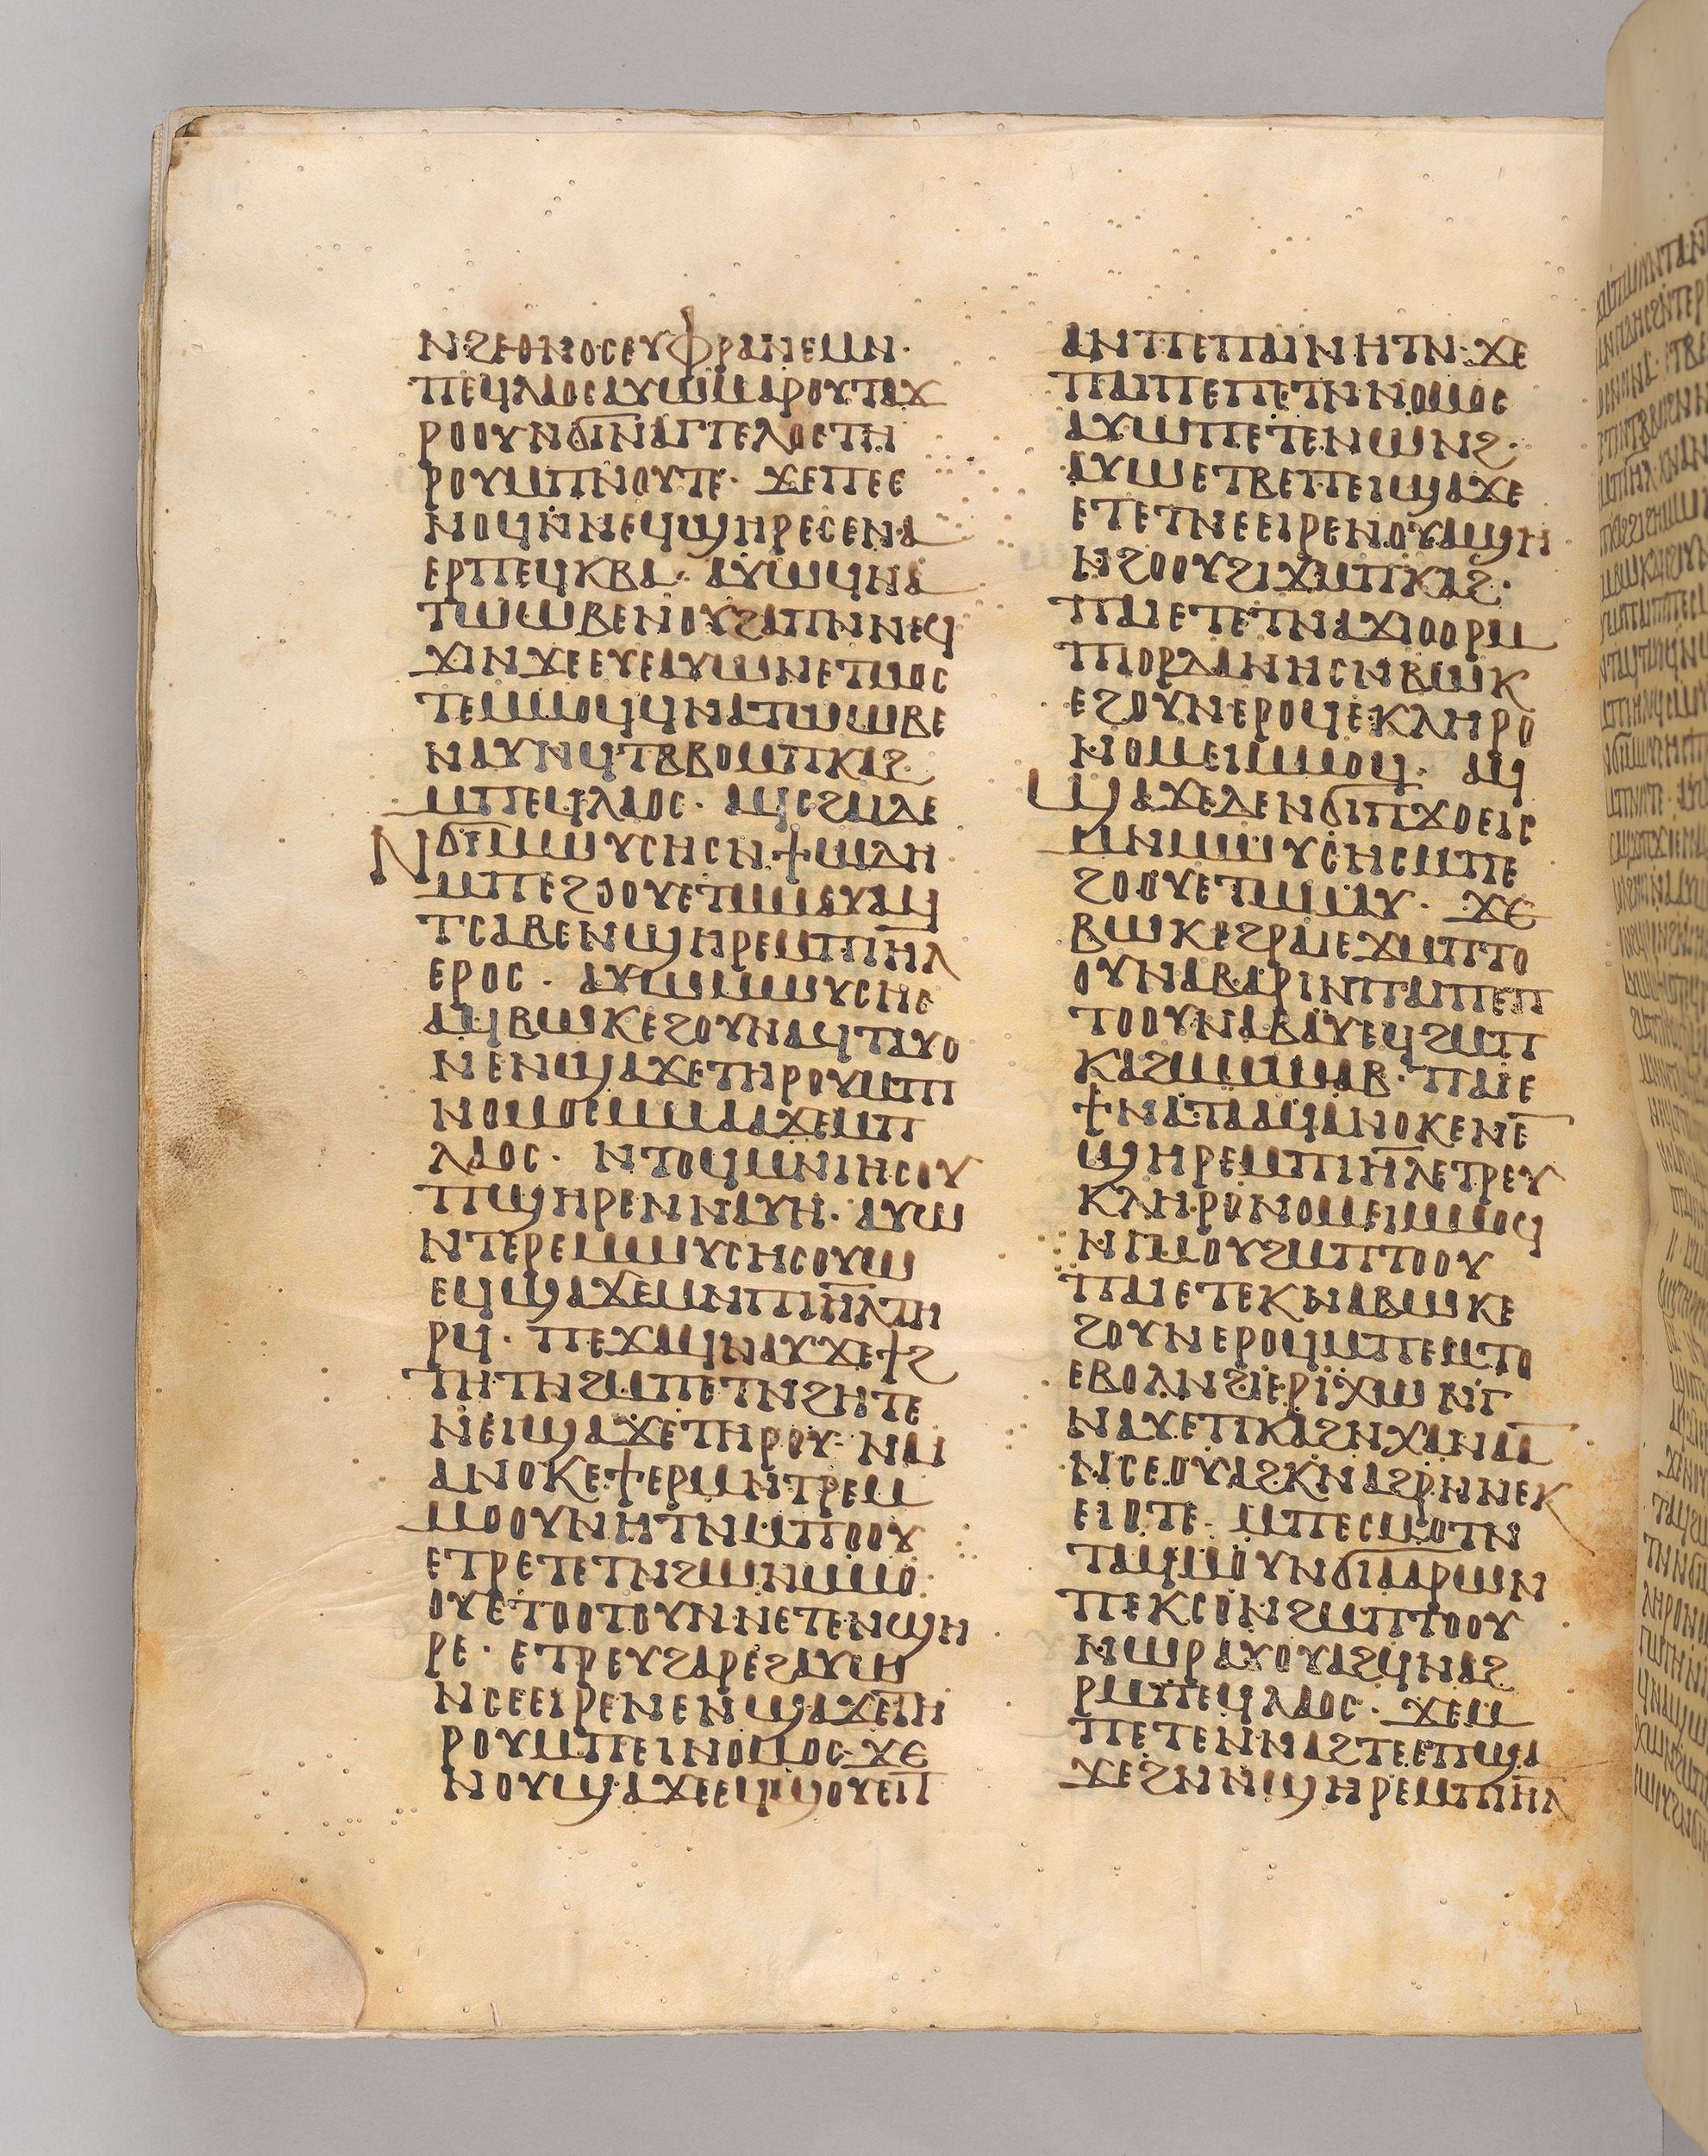 ⲛϩⲉⲑⲛⲟⲥⲉⲩⲫⲣⲁⲛⲉⲙⲛ·
ⲡⲉϥⲗⲁⲟⲥⲁⲩⲱⲙⲁⲣⲟⲩⲧⲁϫ
ⲣⲟⲟⲩⲛϭⲓⲛⲁⲅⲅⲉⲗⲟⲥⲧⲏ
ⲣⲟⲩⲙⲡⲛⲟⲩⲧⲉ· ϫⲉⲡⲉⲥ
ⲛⲟϥⲛⲛⲉϥϣⲏⲣⲉⲥⲉⲛⲁ
ⲉⲣⲡⲉϥⲕⲃⲁ· ⲁⲩⲱϥⲛⲁ
ⲧⲱⲱⲃⲉⲛⲟⲩϩⲁⲡⲛⲛⲉϥ
ϫⲓⲛϫⲉⲉⲩⲉⲁⲩⲱⲛⲉⲧⲙⲟⲥ
ⲧⲉⲙⲙⲟϥϥⲛⲁⲧⲱⲱⲃⲉ
ⲛⲁⲩⲛϥⲧⲃⲃⲟⲙⲡⲕⲁϩ
ⲙⲡⲉϥⲗⲁⲟⲥ· ⲁϥⲥϩⲁⲓⲇⲉ
ⲛϭⲓⲙⲱⲩⲥⲏⲥⲛϯⲱⲇⲏ
ⲙⲡⲉϩⲟⲟⲩⲉⲧⲙⲙⲁⲩⲁϥ
ⲧⲥⲁⲃⲉⲛϣⲏⲣⲉⲙⲡⲓ̅ⲏ̅ⲗ
ⲉⲣⲟⲥ· ⲁⲩⲱⲙⲱⲩⲥⲏⲥ
ⲁϥⲃⲱⲕⲉϩⲟⲩⲛⲁϥⲧⲁⲩⲟ
ⲛⲉⲛϣⲁϫⲉⲧⲏⲣⲟⲩⲙⲡⲓ
ⲛⲟⲙⲟⲥⲙⲙⲁⲁϫⲉⲙⲡ
ⲗⲁⲟⲥ· ⲛⲧⲟϥⲙⲛⲓⲏⲥⲟⲩ
ⲡϣⲏⲣⲉⲛⲛⲁⲩⲏ· ⲁⲩⲱ
ⲛⲧⲉⲣⲉⲙⲱⲩⲥⲏⲥⲟⲩⲱ
ⲉϥϣⲁϫⲉⲙⲛⲡⲓ̅ⲏ̅ⲗⲧⲏ
ⲣϥ· ⲡⲉϫⲁϥⲛⲁⲩϫⲉϯϩ
ⲧⲏⲧⲛϩⲙⲡⲉⲧⲛϩⲏⲧⲉ
ⲛⲉⲓϣⲁϫⲉⲧⲏⲣⲟⲩ· ⲛⲁⲓ
ⲁⲛⲟⲕⲉϯⲉⲣⲙⲛⲧⲣⲉⲙ
ⲙⲟⲟⲩⲛⲏⲧⲛⲙⲡⲟⲟⲩ
ⲉⲧⲣⲉⲧⲉⲧⲛϩⲱⲛⲙⲙⲟ
ⲟⲩⲉⲧⲟⲟⲧⲟⲩⲛⲛⲉⲧⲉⲛϣⲏ
ⲣⲉ· ⲉⲧⲣⲉⲩϩⲁⲣⲉϩⲁⲩⲱ
ⲛⲥⲉⲉⲓⲣⲉⲛⲉⲛϣⲁϫⲉⲧⲏ
ⲣⲟⲩⲙⲡⲉⲓⲛⲟⲙⲟⲥ· ϫⲉ
ⲛⲟⲩϣⲁϫⲉⲉϥϣⲟⲩⲉⲓⲧ
ⲁⲛⲡⲉⲡⲁⲓⲛⲏⲧⲛ· ϫⲉ
ⲡⲁⲓⲡⲉⲡⲉⲧⲛⲛⲟⲙⲟⲥ
ⲁⲩⲱⲡⲉⲧⲉⲛⲱⲛϩ·
ⲁⲩⲱⲉⲧⲃⲉⲡⲉⲓϣⲁϫⲉ
ⲉⲧⲉⲧⲛⲉⲉⲓⲣⲉⲛⲟⲩⲁϣⲏ
ⲛϩⲟⲟⲩϩⲓϫⲙⲡⲕⲁϩ·
ⲡⲁⲓⲉⲧⲉⲧⲛⲁϫⲓⲟⲟⲣⲙ
ⲡⲓⲟⲣⲇⲁⲛⲏⲥⲛⲃⲱⲕ
ⲉϩⲟⲩⲛⲉⲣⲟϥⲉⲕⲗⲏⲣⲟ
ⲛⲟⲙⲉⲓⲙⲙⲟϥ· ⲁϥ
ϣⲁϫⲉⲇⲉⲛϭⲓⲡϫⲟⲉⲓⲥ
ⲙⲛⲙⲱⲩⲥⲏⲥⲙⲡⲉ
ϩⲟⲟⲩⲉⲧⲙⲙⲁⲩ· ϫⲉ
ⲃⲱⲕⲉϩⲣⲁⲓⲉϫⲙⲡⲧⲟ
ⲟⲩⲛⲁⲃⲁⲣⲓⲛⲡⲁⲓⲡⲉⲡ
ⲧⲟⲟⲩⲛⲁⲃⲁⲩⲉϥϩⲙⲡ
ⲕⲁϩⲙⲙⲱⲁⲃ· ⲡⲁⲓⲉ
ϯⲛⲁⲧⲁⲁϥⲁⲛⲟⲕⲉⲛⲉ
ϣⲏⲣⲉⲙⲡⲓ̅ⲏ̅ⲗⲉⲧⲣⲉⲩ
ⲕⲗⲏⲣⲟⲛⲟⲙⲉⲓⲙⲙⲟϥ
ⲛⲅⲙⲟⲩϩⲙⲡⲧⲟⲟⲩ
ⲡⲁⲓⲉⲧⲉⲕⲛⲁⲃⲱⲕⲉ
ϩⲟⲩⲛⲉⲣⲟϥⲙⲡⲉⲙⲧⲟ
ⲉⲃⲟⲗⲛϩⲓⲉⲣⲓⲭⲱ ⲛⲅ
ⲛⲁⲩⲉⲡⲕⲁϩⲛⲭⲁⲛⲁⲁ
ⲛⲥⲉⲟⲩⲁϩⲕⲛⲁϩⲣⲛⲛⲉⲕ
ⲉⲓⲟⲧⲉ· ⲙⲡⲉⲥⲙⲟⲧⲛ
ⲧⲁϥⲙⲟⲩⲛϭⲓⲁⲁⲣⲱⲛ
ⲡⲉⲕⲥⲟⲛϩⲙⲡⲧⲟⲟⲩ
ⲛⲱⲣⲁⲩⲟⲩⲁϩϥⲛⲁϩ
ⲣⲙⲡⲉϥⲗⲁⲟⲥ· ϫⲉⲙ
ⲡⲉⲧⲉⲛⲛⲁϩⲧⲉⲉⲡϣⲁ
ϫⲉϩⲛⲛϣⲏⲣⲉⲙⲡⲓ̅ⲏ̅ⲗ